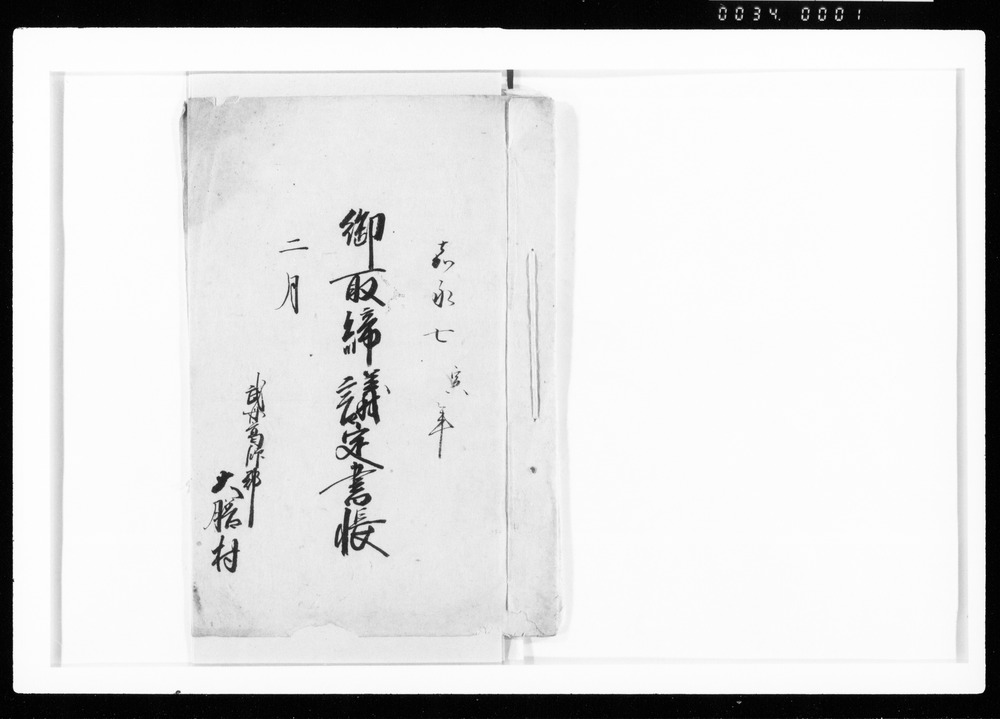 0034. 0001
嘉永七寅年
御取締議定書帳
二月
武州高麗郡
大村